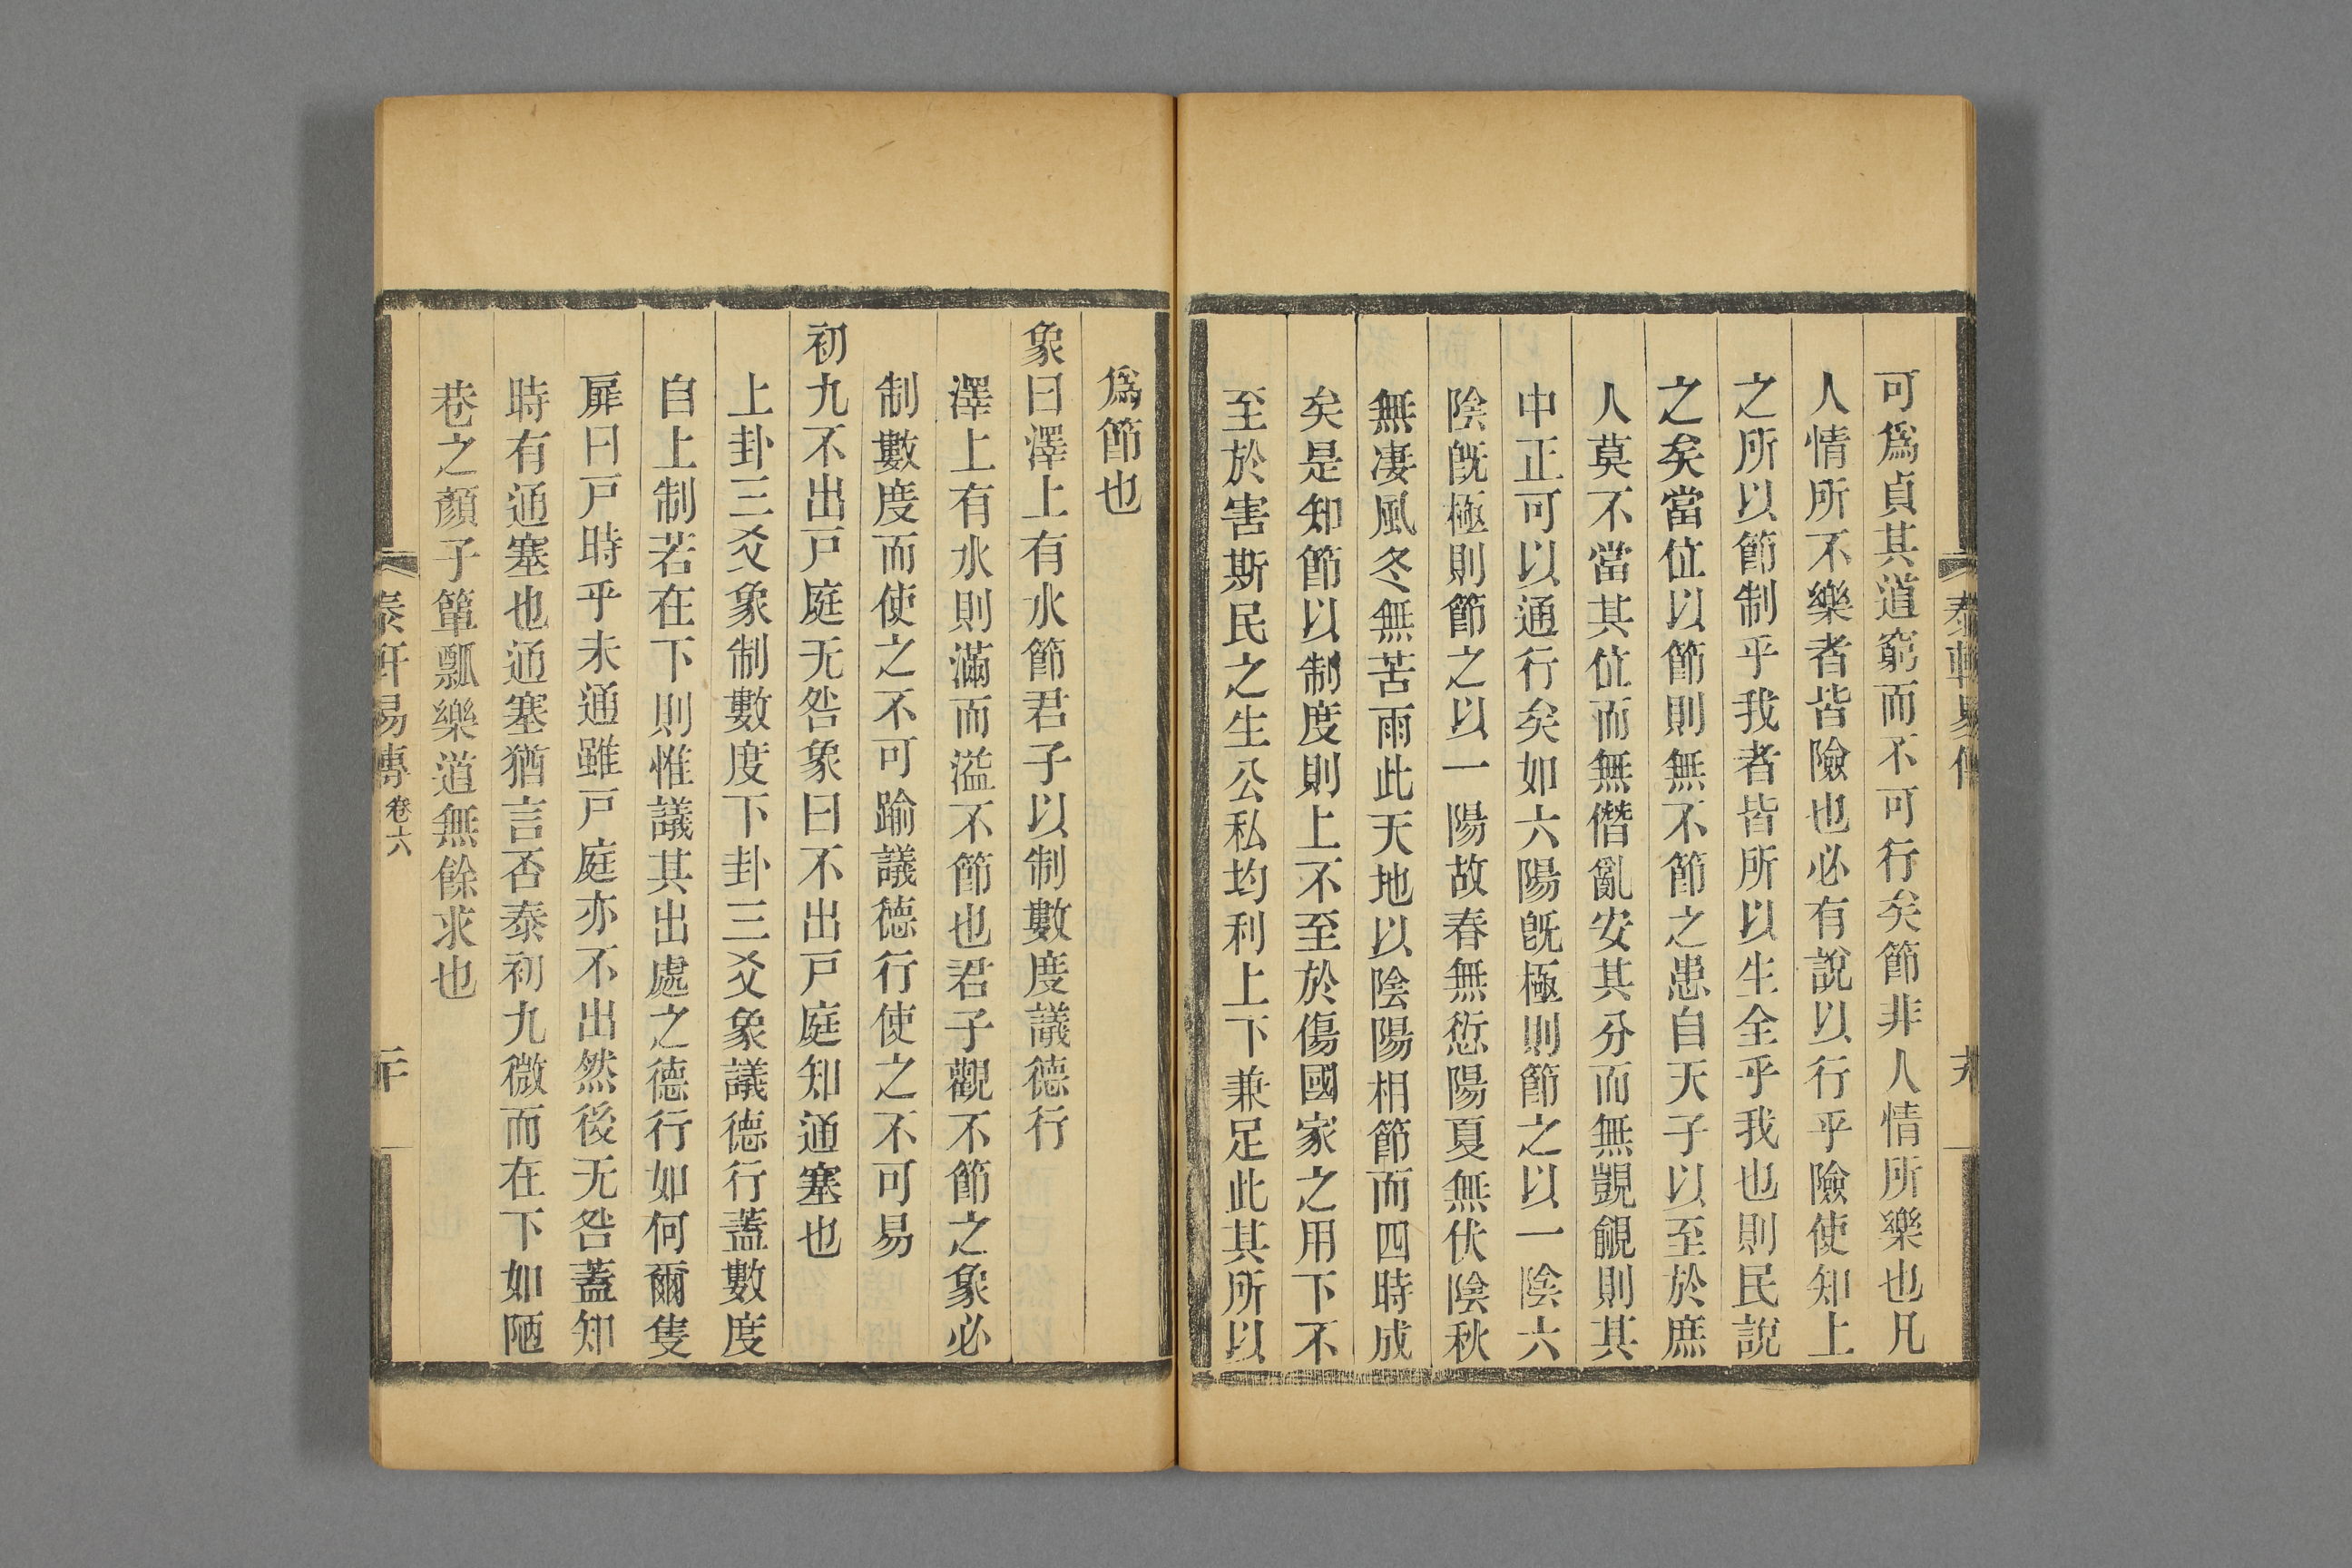 泰軒易傳
十九
可爲貞其道窮而不可行矣節非人情所樂也凡
人情所不樂者皆險也必有說以行乎險使知上
之所以節制乎我者皆所以生全乎我也則民說
之矣當位以節則無不節之患自天子以至於庶
人莫不當其位而無僭亂安其分而無覬覦則其
中正可以通行矣如六陽旣極則節之以一陰六
陰旣極則節之以一陽故春無愆陽夏無伏陰秋
無凄風冬無苦雨此天地以陰陽相節而四時成
矣是知節以制度則上不至於傷國家之用下不
至於害斯民之生公私均利上下兼足此其所以
爲節也
象曰澤上有水節君子以制數度議德行
澤上有水則滿而溢不節也君子觀不節之象必
制數度而使之不可踰議德行使之不可易
初九不出戸庭无咎象曰不出戸庭知通塞也
上卦三爻象制數度下卦三爻象議德行蓋數度
自上制若在下則惟議其出處之德行如何爾隻
扉曰戸時乎未通雖戸庭亦不出然後无咎蓋知
時有通塞也通塞猶言否泰初九微而在下如陋
巷之顏子簞瓢樂道無餘求也
泰軒易傳 卷六
二十